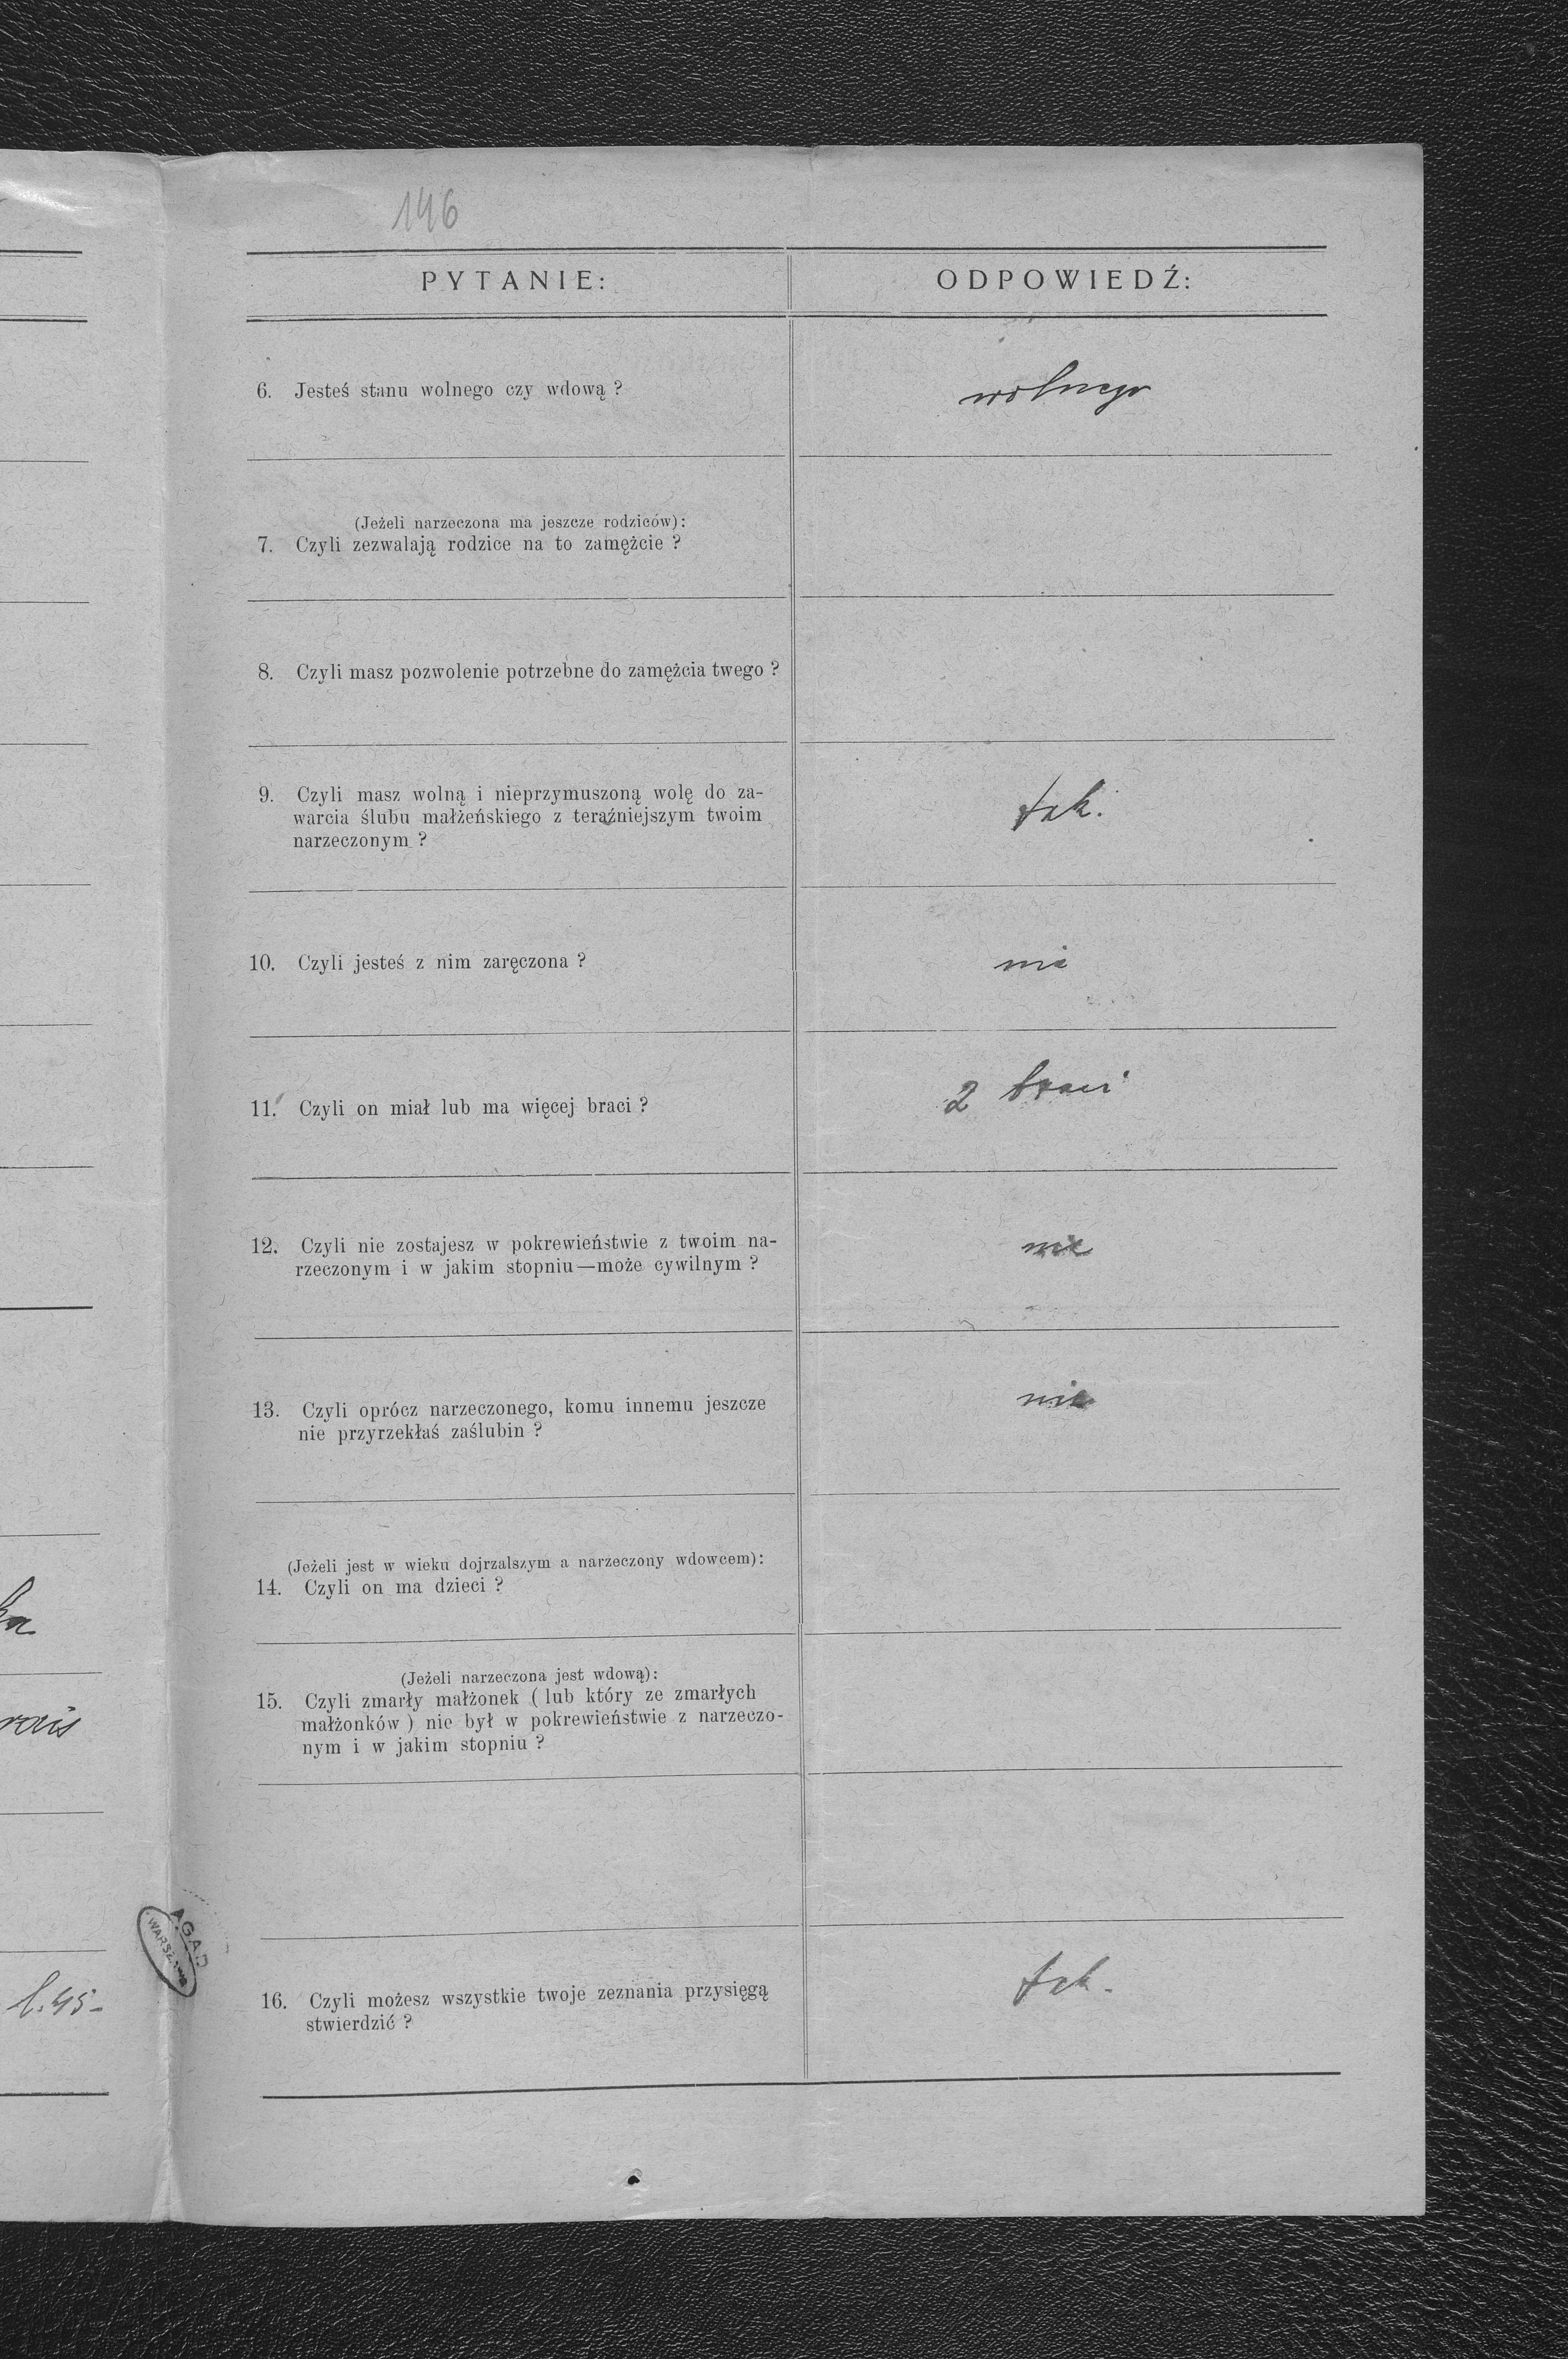 146
PYTANIE: ODPOWIEDŹ:
6. Jesteś stanu wolnego czy wdową ? wolnego
(Jeżeli narzeczona ma jeszcze rodziców):
7. Czyli zezwalają rodzice na to zamężcie ?
8. Czyli masz pozwolenie potrzebne do zamężcia twego ?
9. Czyli masz wolną i nieprzymuszoną wolę do za-
warcia ślubu małżeńskiego z teraźniejszym twoim
narzeczonym ?
tak.
10. Czyli jesteś z nim zaręczona ? nie
11. Czyli on miał lub ma więcej braci ? 2 braci
12. Czyli nie zostajesz w pokrewieństwie z twoim na-
rzeczonym i w jakim stopniu—może cywilnym ?
nie
13. Czyli oprócz narzeczonego, komu innemu jeszcze
nie przyrzekłaś zaślubin ?
nie
(Jeżeli jest w wieku dojrzalszym a narzeczony wdowcem):
14. Czyli on ma dzieci ?
(Jeżeli narzeczona jest wdową):
15. Czyli zmarły małżonek ( lub który ze zmarłych
małżonków ) nie był w pokrewieństwie z narzeczo-
nym i w jakim stopniu ?
16. Czyli możesz wszystkie twoje zeznania przysięgą
stwierdzić ?
tak.
A.G.A.D.
WARSZAWA
l. 45-